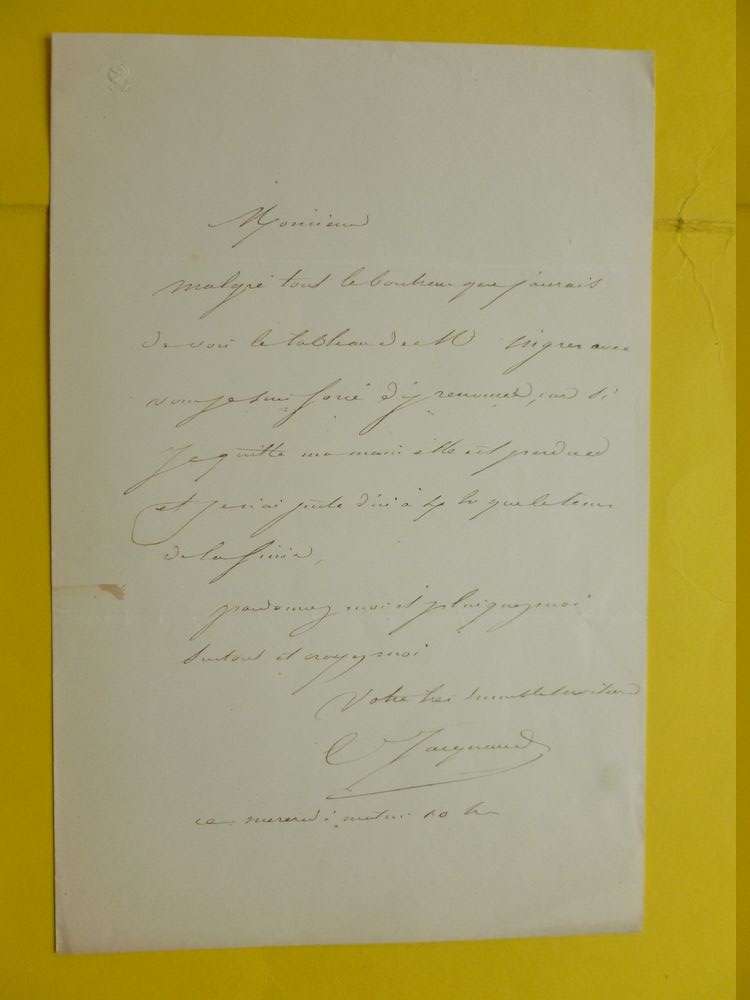 Monsieur
malgré tout le bonheur que j'aurais
de voir le tableau de M Ingres avec
vous je suis forcé d'y renoncer, car si
Je quitte ma main elle est perdue
et je n'ai juste d'ici à 4 h que le tems
de la finir.
pardonnez moi et plaignez moi
surtout et croyez moi
Votre très humble serviteur
C Jacquand
ce mercredi matin 10 h